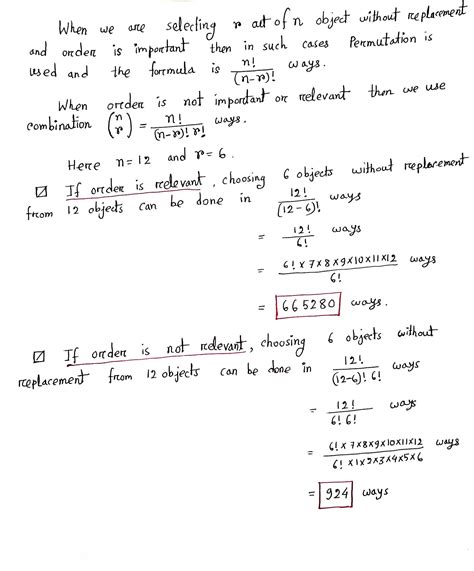 When we are selecting r out of n object without replacement
and order is important then in such cases Permutation is
used and the formula is n!/(n-r)! ways.
When order is not important or relevant then we use
combination (n r) = n!/((n-r)! r!) ways.
Here n=12 and r=6.
☑ If order is relevant, choosing 6 objects without replacement
from 12 objects can be done in 12!/(12-6)! ways
= 12!/6! ways
= (6! x 7x8x9x10x11x12)/6! ways
= 665280 ways.
☑ If order is not relevant, choosing 6 objects without
replacement from 12 objects can be done in 12!/((12-6)! 6!) ways
= 12!/(6! 6!) ways
= (6! x 7x8x9x10x11x12)/(6! x1x2x3x4x5x6) ways
= 924 ways